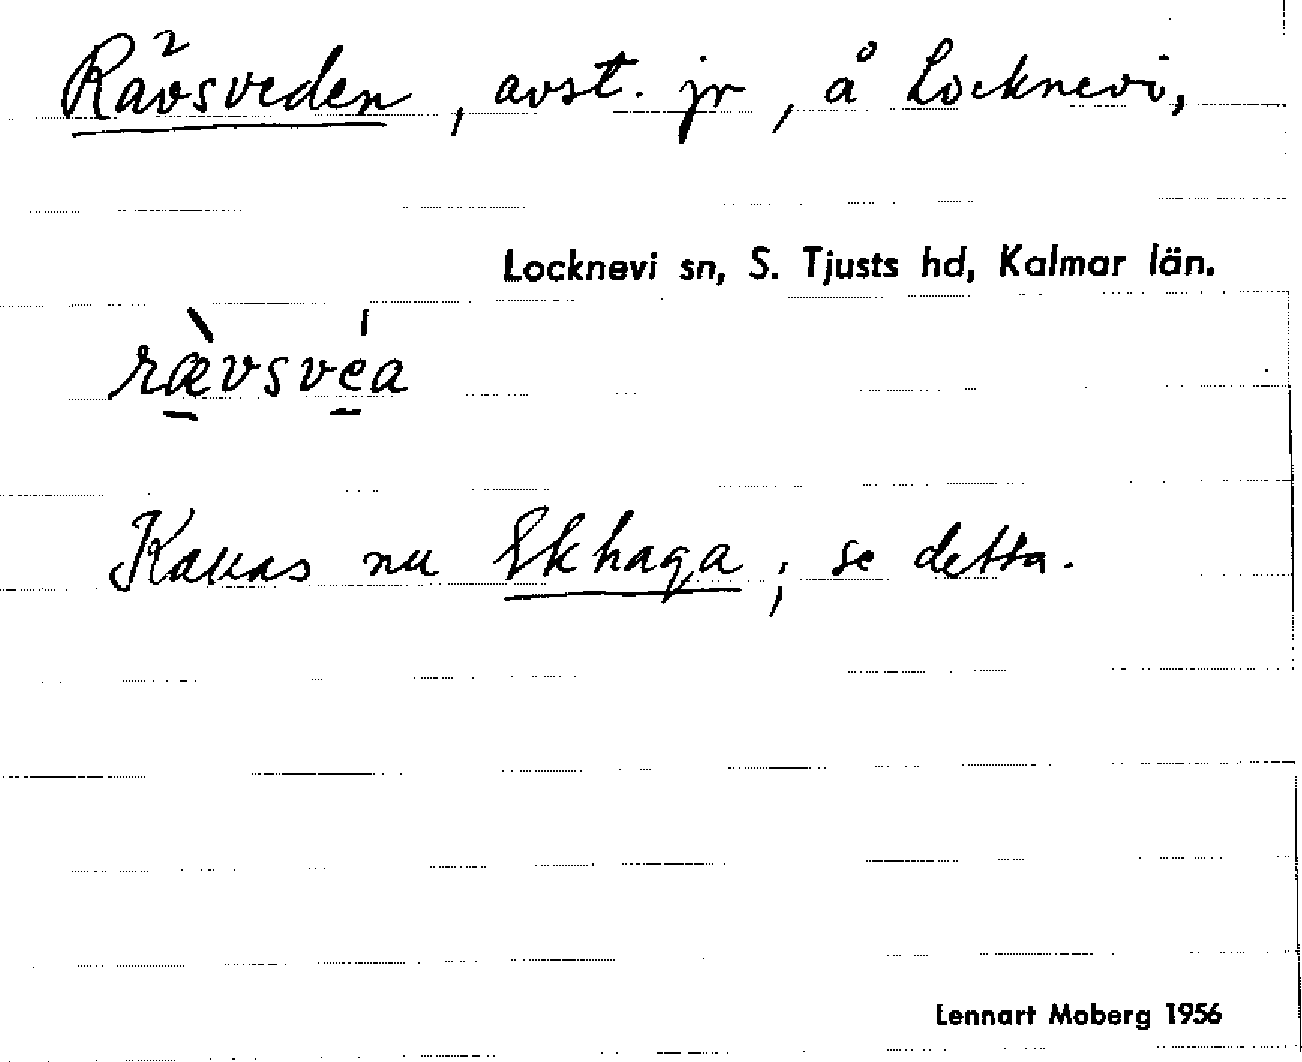 Rävsveden, avst. jr, å Locknevi,
Locknevi sn, S. Tjusts hd, Kalmar län.
ræ̀vsvéa
Kallas nu Ekhaga; se detta.
Lennart Moberg 1956